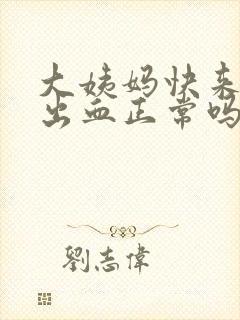 大姨妈快来
出血正常吗
劉志偉